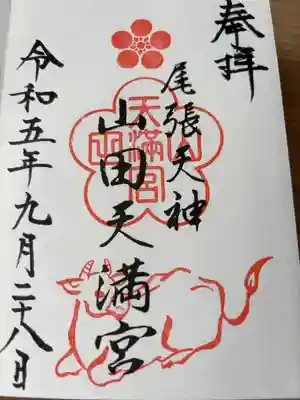 奉拝
尾張天神
山田天満宮
天満宮
令和五年九月二十八日